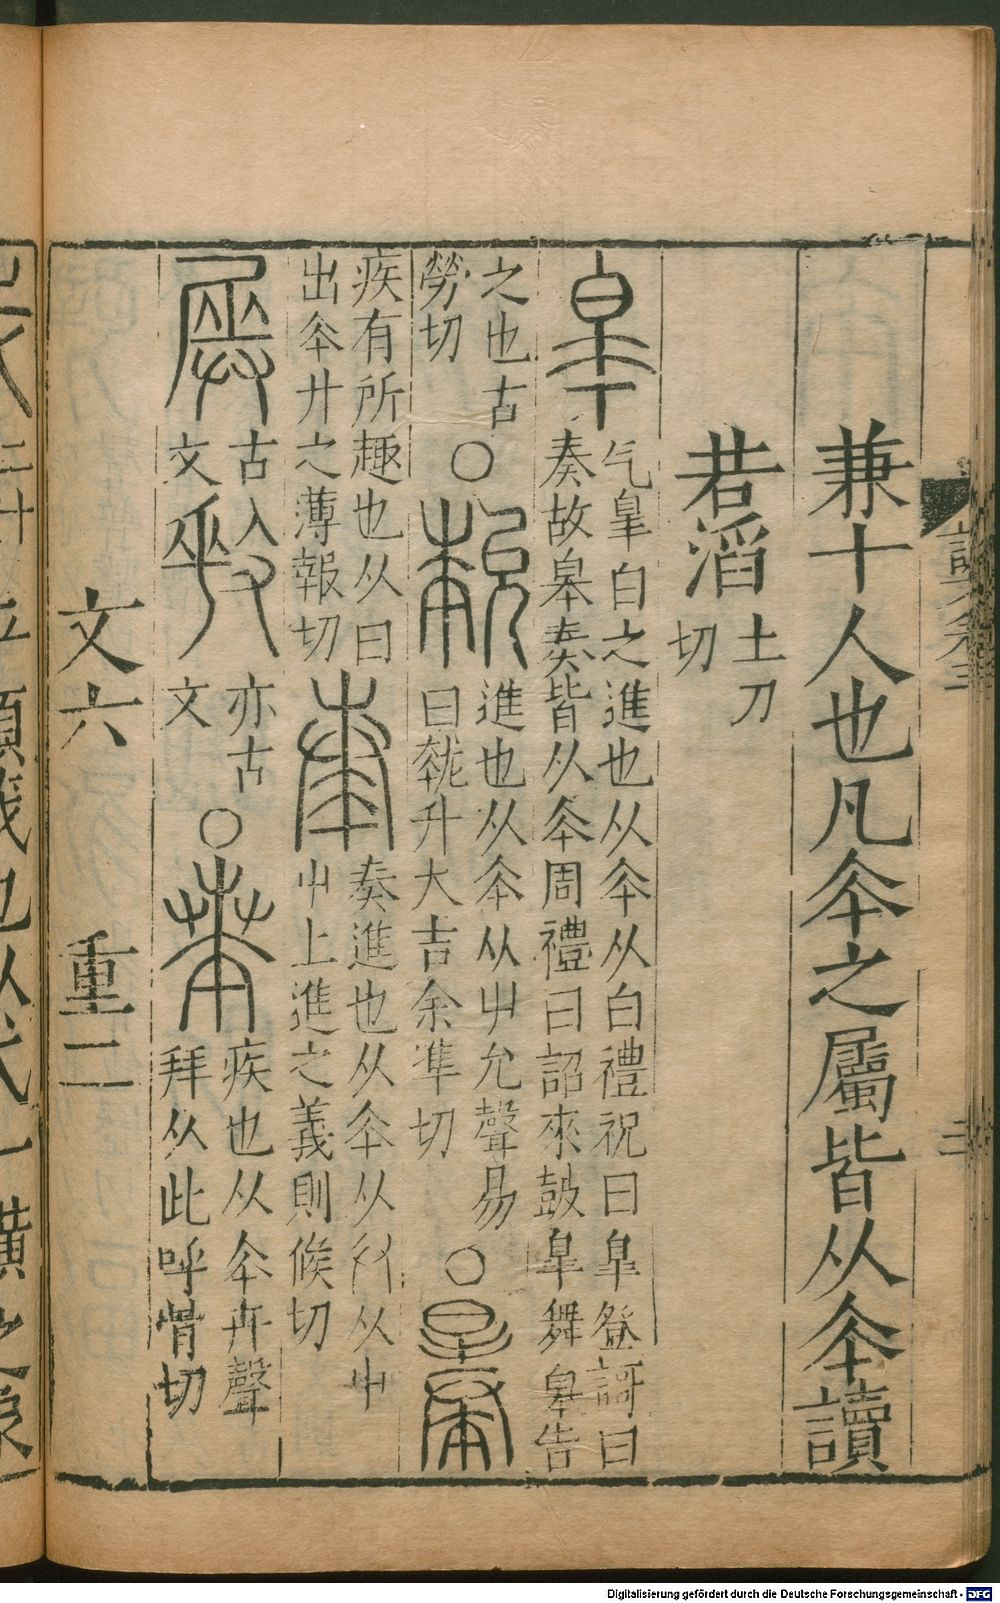 兼十人也凡夲之屬皆从夲讀
若滔 土刀切
皋 气皐白之進也从夲从白禮祝曰皐登謌曰
奏故皋奏皆从夲周禮曰詔來鼓皐舞皋告
之也古勞切 ○ 𡴞 進也从夲从屮允聲易
曰𡴞升大吉余準切 ○ 暴
疾有所趣也从曰
出夲廾之薄報切 奏 奏進也从夲从𠬞从屮
屮上進之義則候切
古文 亦古文 ○ 𠦪 疾也从夲卉聲
拜从此呼骨切
文六 重二
三
Digitalisierung gefördert durch die Deutsche Forschungsgemeinschaft - DFG